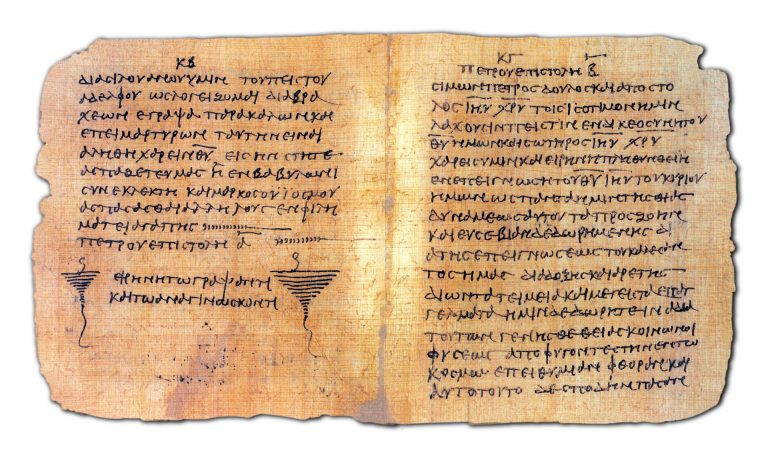 ΚΒ
διασιλουανουυμιν τουπιστου
αδελφου ωσλογειζομαι διαβρα
χεων εγραψα παρακαλωνκαι
επειμαρτυρων ταυτηνειναι
αληθηχαρεινθυ εισηνστητε
ασπαζετεϋμας ηενβαβυλωνι
συνεκλεκτη καιμαρκοσουϊοσμου
ασπασασθαιαλληλους ενφιλη
ματειαγαπης
πετρουεπιστολη α
ειρηνητωγραψαντι
καιτωαναγινωσκοντι
ΚΓ
πετρουεπιστολη β
σιμωνπετροσδουλοσκαιαποστο
λοσιηυ χρυ τοισϊσοτιμονημιν
λαχουσινπιστιν ενδικεοσυνητου
θυημωνκαισωτηροσιηυ χρυ
χαρεισυμινκαιειρηνηπληθυνθειη
ενεπειγνωσητουθυιηυτουκυριου
ημωνωσπανταημιντησθειας
δυναμεωσαυτουταπροσζωην
καιευσεβιανδεδωρημενησδι
ατησεπειγνωσεωστουκαλεσαν
τοσημας διαδοξησκαιαρετης
διωντατειμειακαιμεγισταεπαγ
γελματαημινδεδωρητεινα δια
τουτωνγενησθεθειασκοινωνοι
φυσεως αποφυγοντεστηνεντω
κοσμω επειθυμιαν φθορασ και
αυτοτουτο δεσπουδηνπασαν